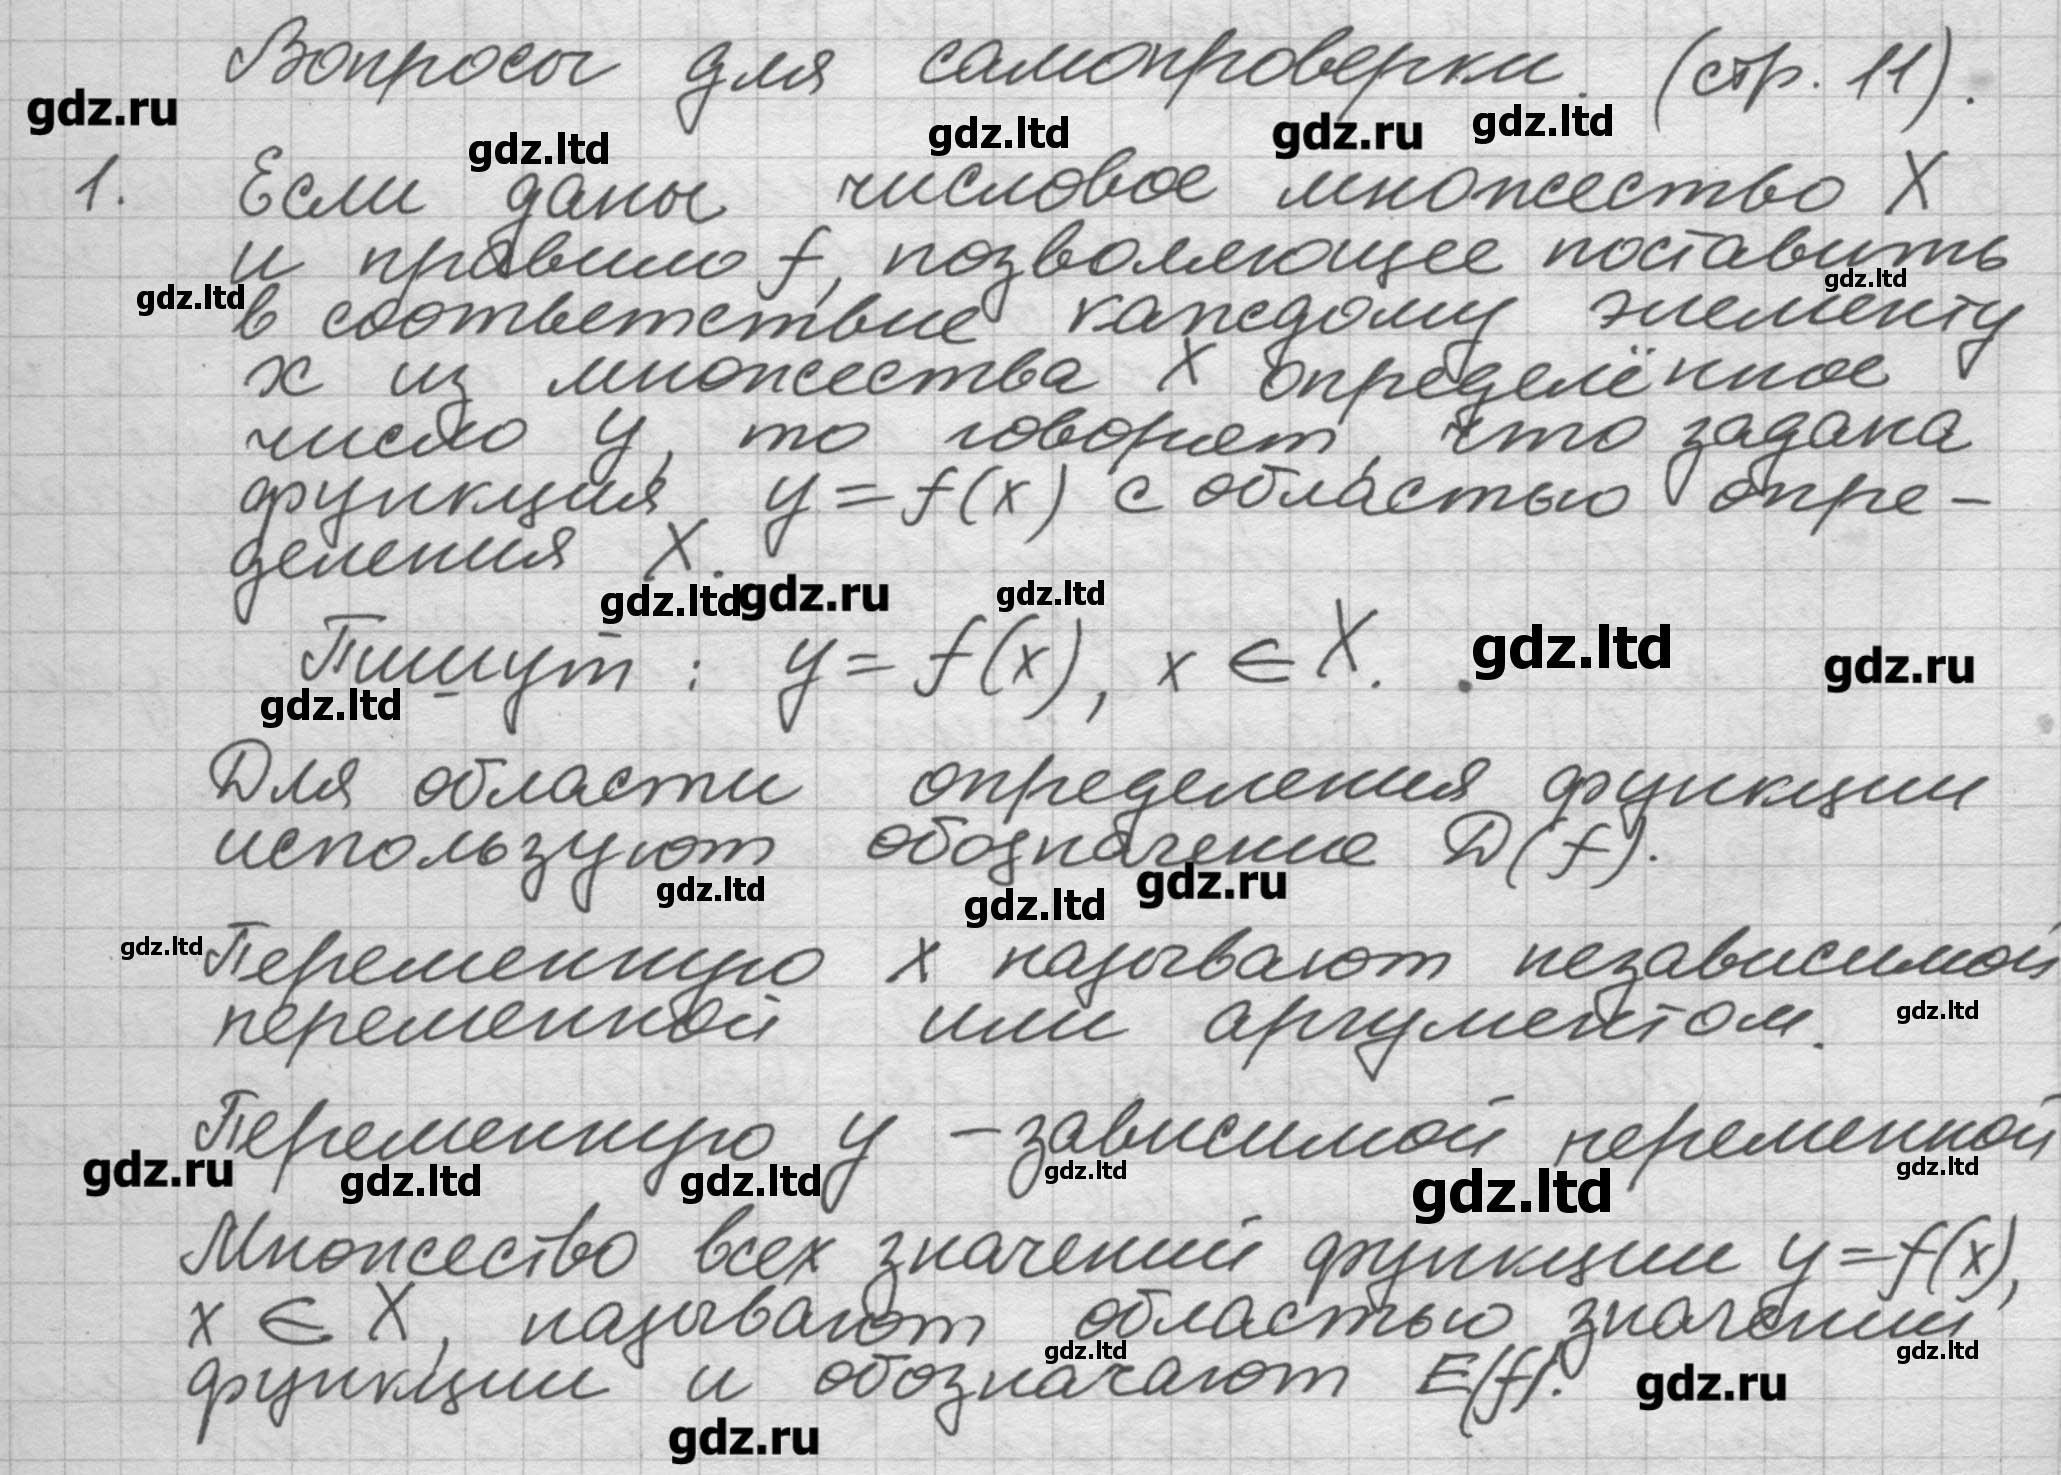 Вопросы для самопроверки. (стр. 11).
gdz.ru
gdz.ltd gdz.ltd gdz.ru gdz.ltd
1. Если даны числовое множество X
и правило f, позволяющее поставить
gdz.ltd gdz.ltd
в соответствие каждому элементу
x из множества X определённое
число y, то говорят, что задана
функция y = f(x) с областью опре-
деления X.
gdz.ltd gdz.ru gdz.ltd
Пишут: y = f(x), x ∈ X.
gdz.ltd gdz.ru
gdz.ltd
Для области определения функции
используют обозначение D(f).
gdz.ltd gdz.ltd gdz.ru
gdz.ltd
Переменную x называют независимой
переменной или аргументом.
gdz.ltd
Переменную y – зависимой переменной
gdz.ru gdz.ltd gdz.ltd gdz.ltd gdz.ltd gdz.ltd
Множество всех значений функции y = f(x),
x ∈ X, называют областью значений
gdz.ltd gdz.ltd
функции и обозначают E(f).
gdz.ru
gdz.ru